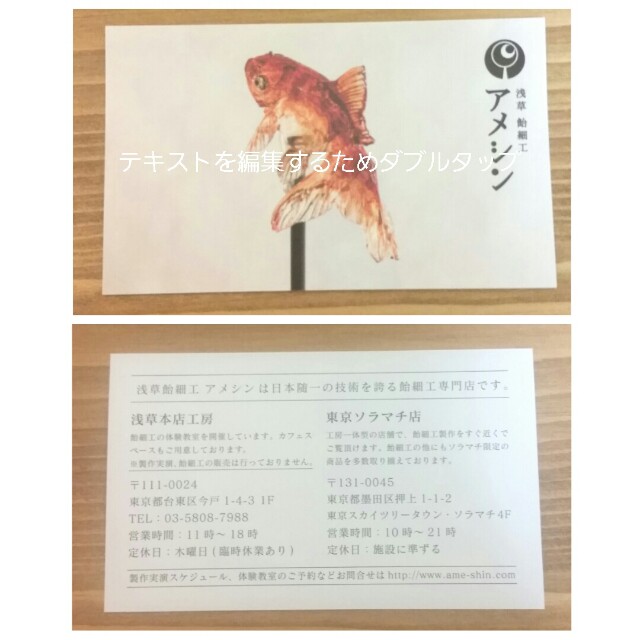 浅草 飴細工
アメシン
テキストを編集するためダブルタップ
浅草飴細工 アメシンは日本随一の技術を誇る飴細工専門店です。
浅草本店工房
飴細工の体験教室を開催しています。カフェス
ペースもご用意しております。
※製作実演、飴細工の販売は行っておりません。
〒111-0024
東京都台東区今戸 1-4-3 1F
TEL：03-5808-7988
営業時間：11時～18時
定休日：木曜日(臨時休業あり)
東京ソラマチ店
工房一体型の店舗で、飴細工製作をすぐ近くで
ご覧頂けます。飴細工の他にもソラマチ限定の
商品を多数取り揃えております。
〒131-0045
東京都墨田区押上 1-1-2
東京スカイツリータウン・ソラマチ4F
営業時間：10時～21時
定休日：施設に準ずる
製作実演スケジュール、体験教室のご予約などお問合せは http://www.ame-shin.com